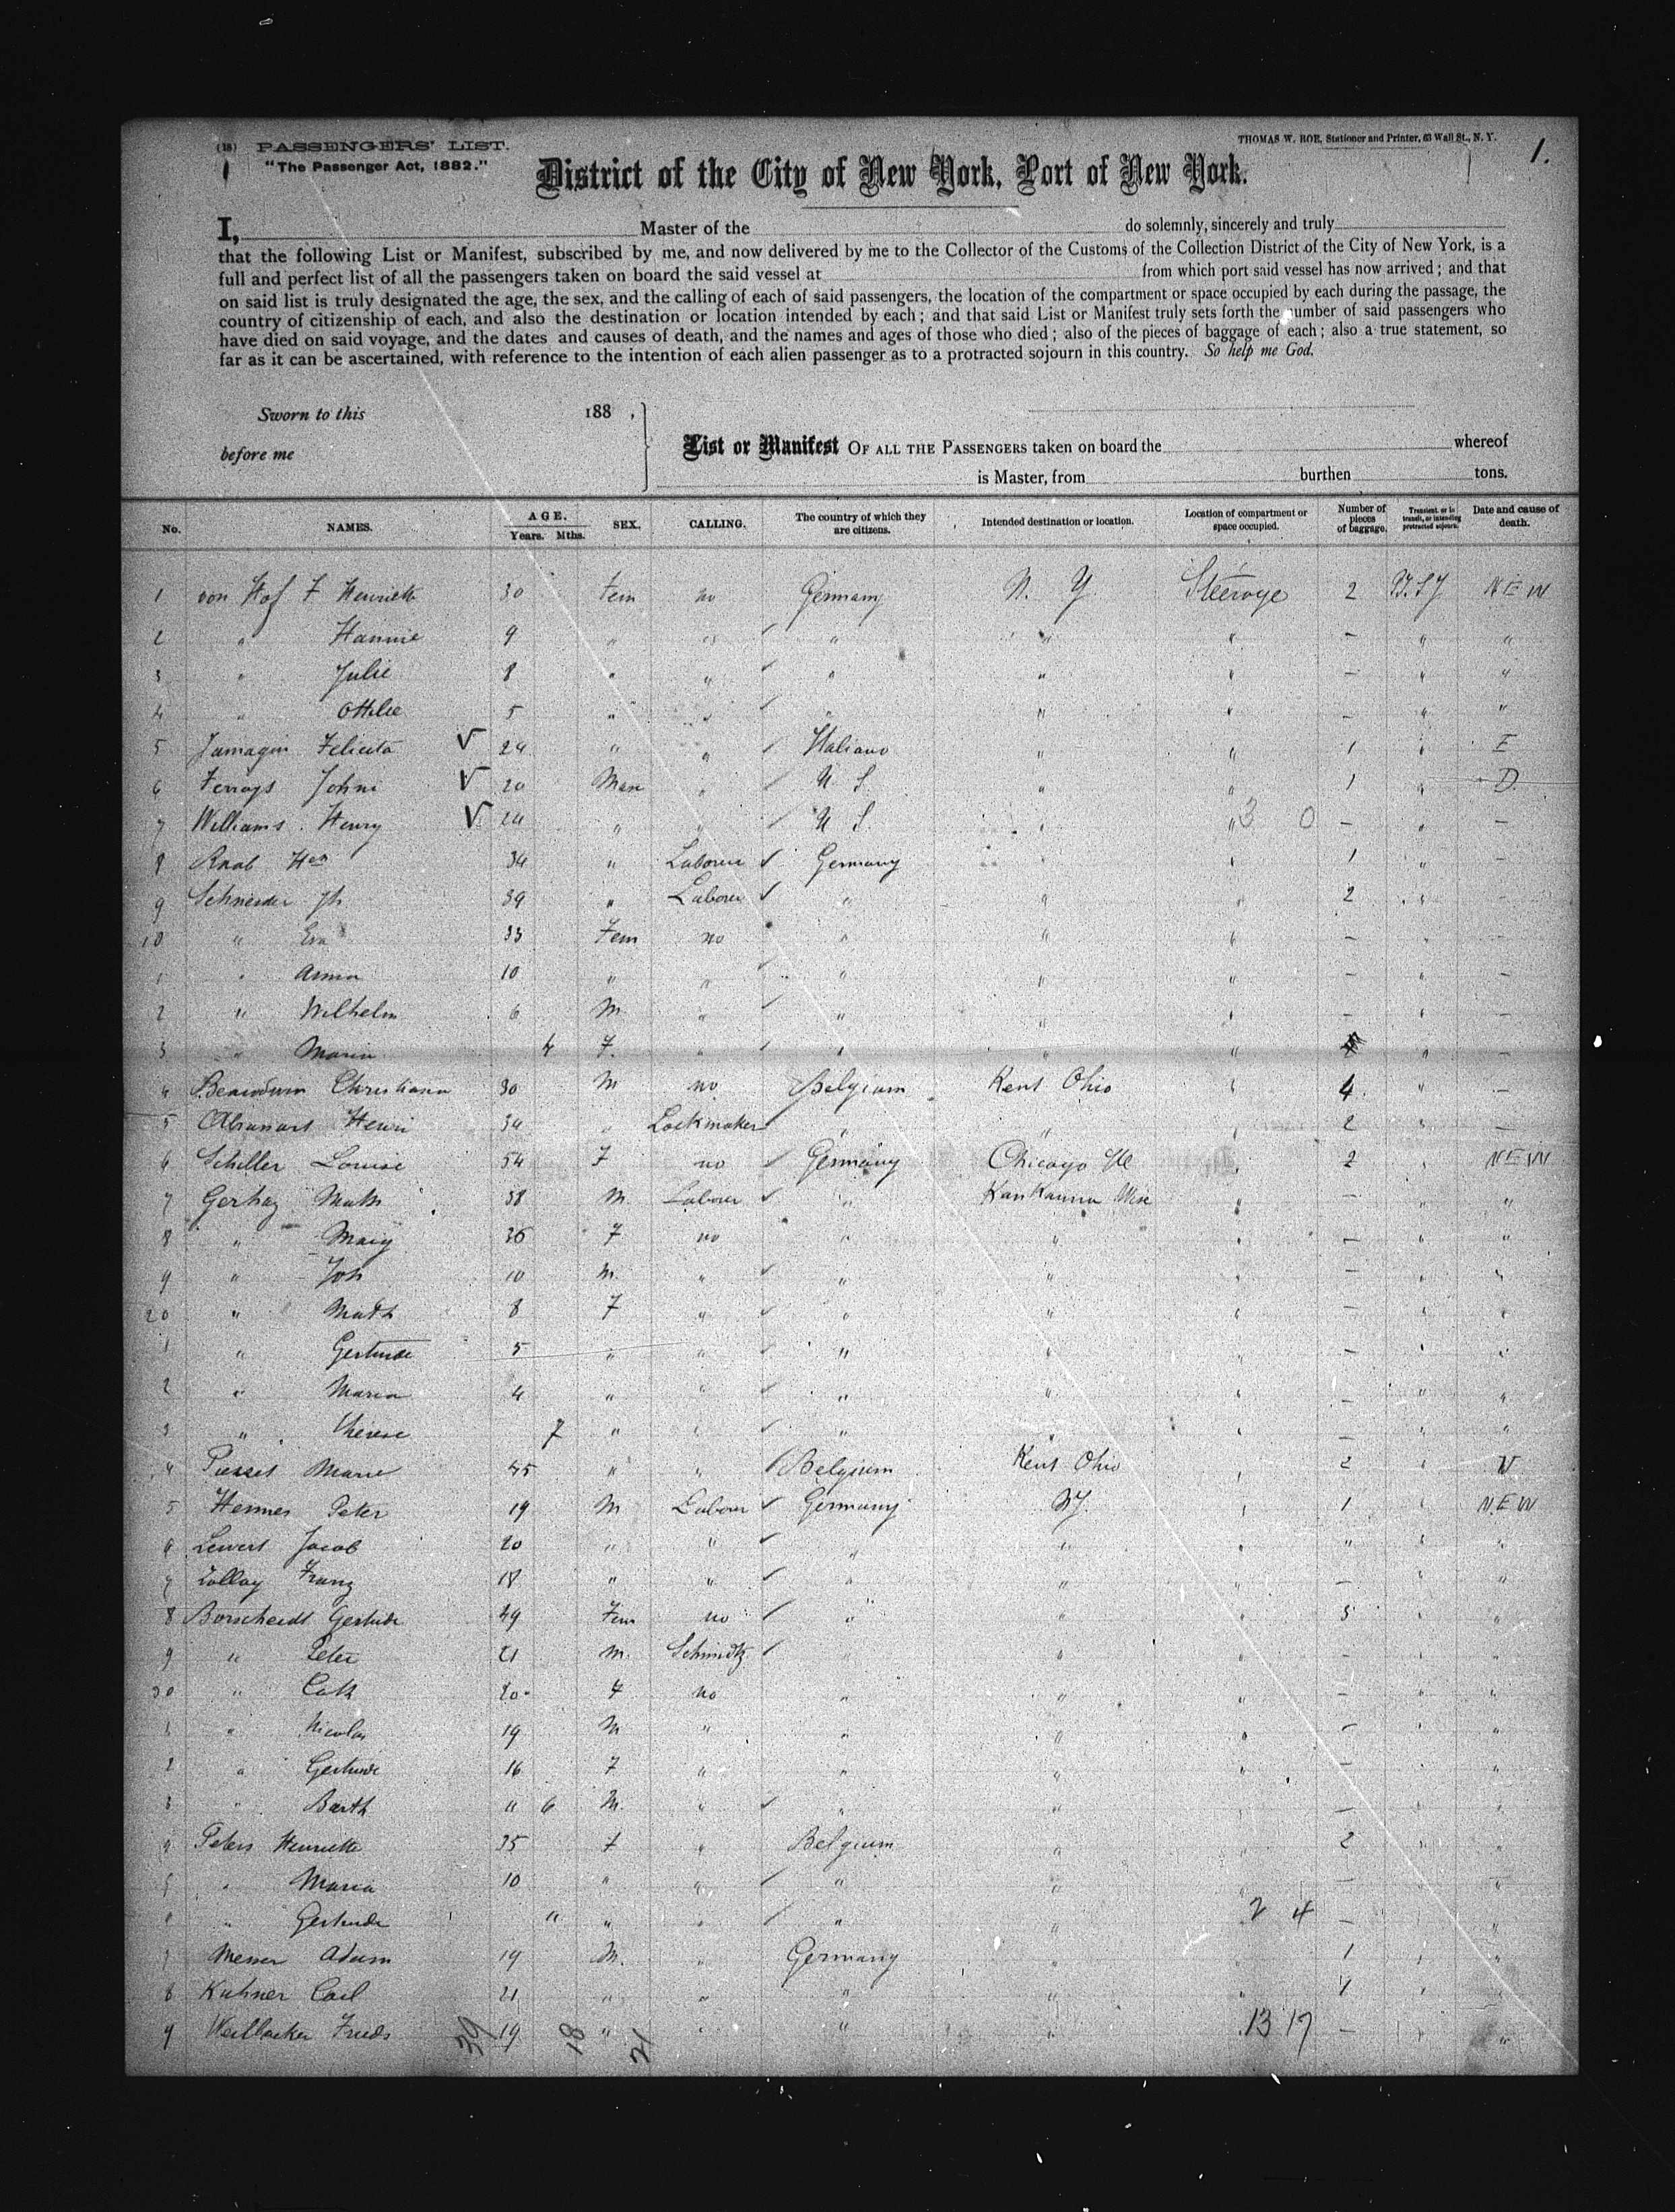 (18) PASSENGERS' LIST.
THOMAS W. ROE, Stationer and Printer, 63 Wall St., N. Y.
1.
"The Passenger Act, 1882."
District of the City of New York, Port of New York.
I, Master of the do solemnly, sincerely and truly
that the following List or Manifest, subscribed by me, and now delivered by me to the Collector of the Customs of the Collection District of the City of New York, is a
full and perfect list of all the passengers taken on board the said vessel at from which port said vessel has now arrived; and that
on said list is truly designated the age, the sex, and the calling of each of said passengers, the location of the compartment or space occupied by each during the passage, the
country of citizenship of each, and also the destination or location intended by each; and that said List or Manifest truly sets forth the number of said passengers who
have died on said voyage, and the dates and causes of death, and the names and ages of those who died; also of the pieces of baggage of each; also a true statement, so
far as it can be ascertained, with reference to the intention of each alien passenger as to a protracted sojourn in this country. So help me God.
Sworn to this 188 ,
before me
List or Manifest OF ALL THE PASSENGERS taken on board the whereof
is Master, from burthen tons.
No. NAMES. AGE. Years. Mths. SEX. CALLING. The country of which they are citizens. Intended destination or location. Location of compartment or space occupied. Number of pieces of baggage. Transient or in transit, or intending protracted sojourn. Date and cause of death.
1 von Hof F Henriette 30 Fem no Germany N. Y. Steerage 2 N E W
2 " Hannie 9 " " " " " — " "
3 " Julie 8 " " " " " — " "
4 " Ottilie 5 " " " " " — " "
5 Felicita 24 " " Italiano " " 1 " E
6 Johni 20 Man " U S. " " 1 " D
7 Williams Henry 24 " " U S. " " 3 0 — " —
8 Knab 34 " Laborer Germany " " 1 " —
9 Schneider Jh 39 " Laborer " " " 2 " —
10 " Eva 33 Fem no " " " — " —
1 " Anna 10 " " " " " — " —
2 " Wilhelm 6 M. " " " " — " —
3 " Maria 4 F. " " " " " —
4 Christiana 30 M no Belgium Kent Ohio " 4 " —
5 Henri 34 " Lockmaker " " " 2 " —
6 Schiller Louise 54 F no Germany Chicago Ill " 2 " N E W
7 Gerhaz Math 38 M Labour " KauKauna Wisc " — " "
8 " Mary 36 F no " " " — " "
9 " Joh 10 M. " " " " — " "
20 " Math 8 F " " " " — " "
1 " Gertrude 5 " " " " " — " "
2 " Maria 4 " " " " " — " "
3 " Therese 7 " " " " " — " "
4 Marie 45 " " Belgium Kent Ohio " 2 " N
5 Hennes Peter 19 M Labour Germany N.Y. " 1 " N.E.W
6 Lewert Jacob 20 " " " " " " " "
7 Franz 18 " " " " " — " "
8 Borscheidt Gertrude 49 Fem no " " " 5 " "
9 " Peter 21 M. Schmidtz " " " — " "
30 " Cath 20 F no " " " — " "
1 " Nicolas 19 M " " " " — " "
2 " Gertrude 16 F " " " " — " "
3 " Barth " 6 M. " " " " — " "
4 Peters Henriette 35 F " Belgium " " 2 " "
5 " Maria 10 " " " " " — " "
6 " Gertrude " " " " " 2 4 — "
7 Messer Adam 19 M. " Germany " " 1 " "
8 Kuhner Carl 21 " " " " " 1 " "
9 19 " " " " 13 17 — " "
39 18 21